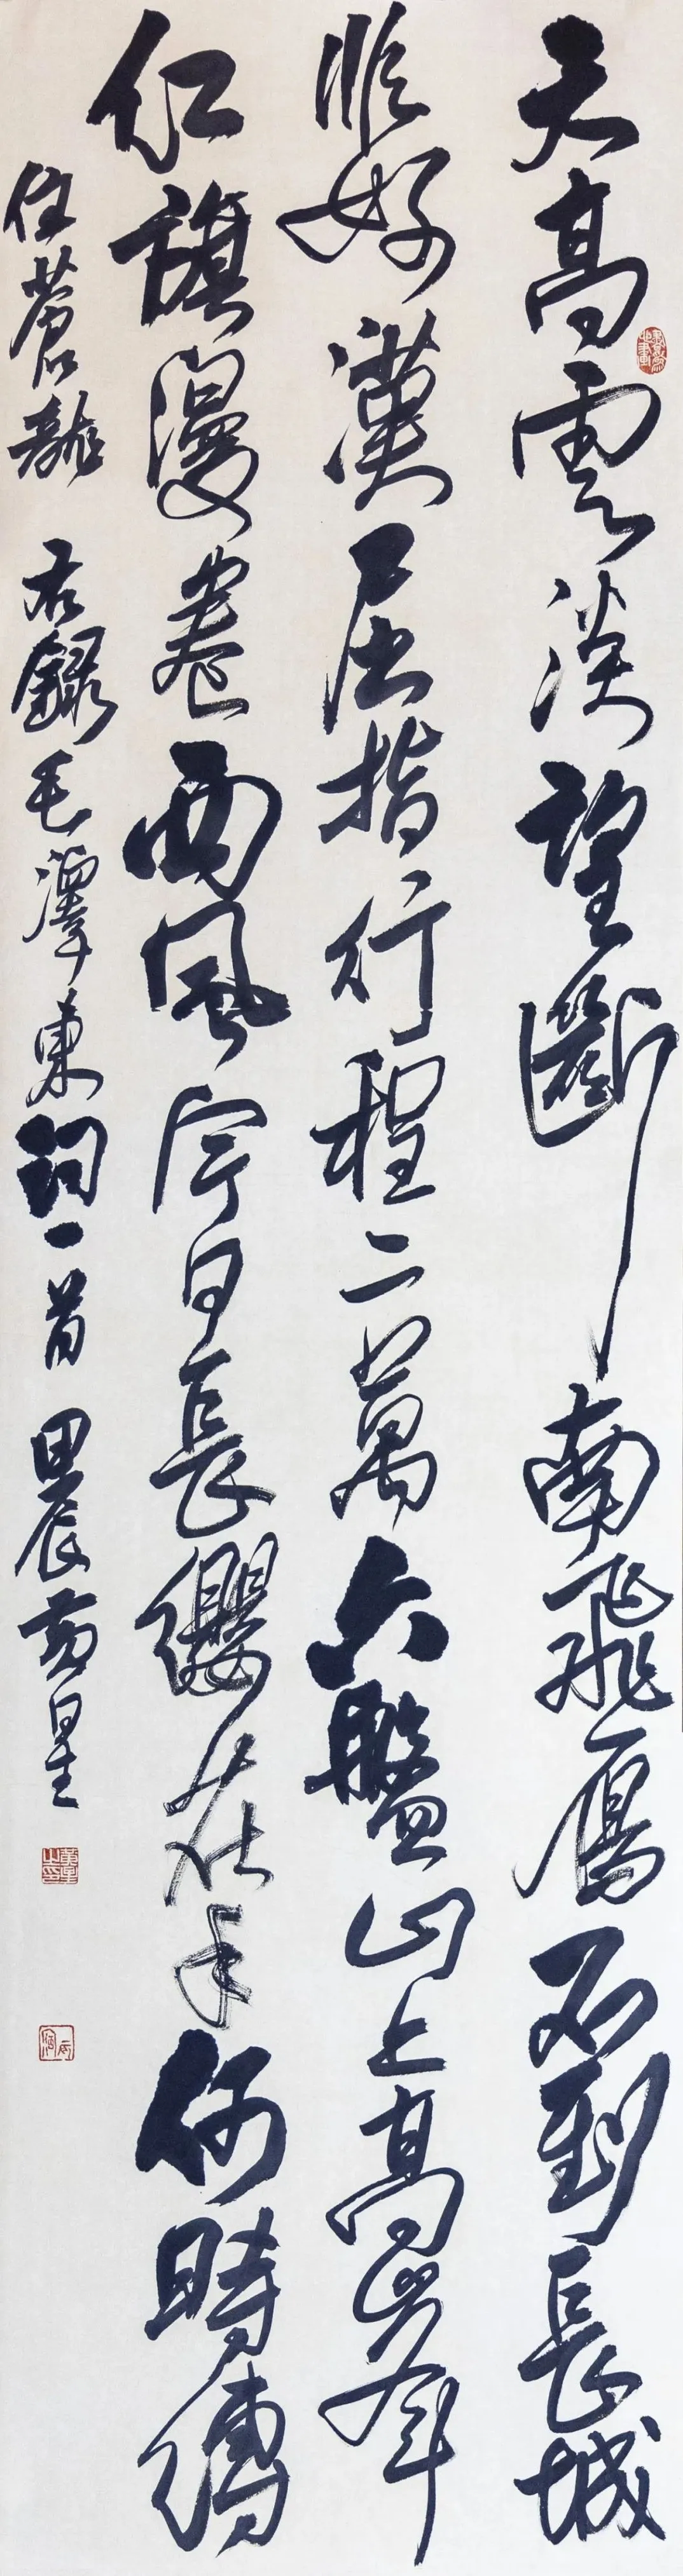 天高雲淡望斷南飛鴈不到長城
非好漢屈指行程二萬六盤山上高峯
紅旗漫卷西風今日長纓在手何時縛
住蒼龍 右錄毛澤東詞一首 甲辰 星